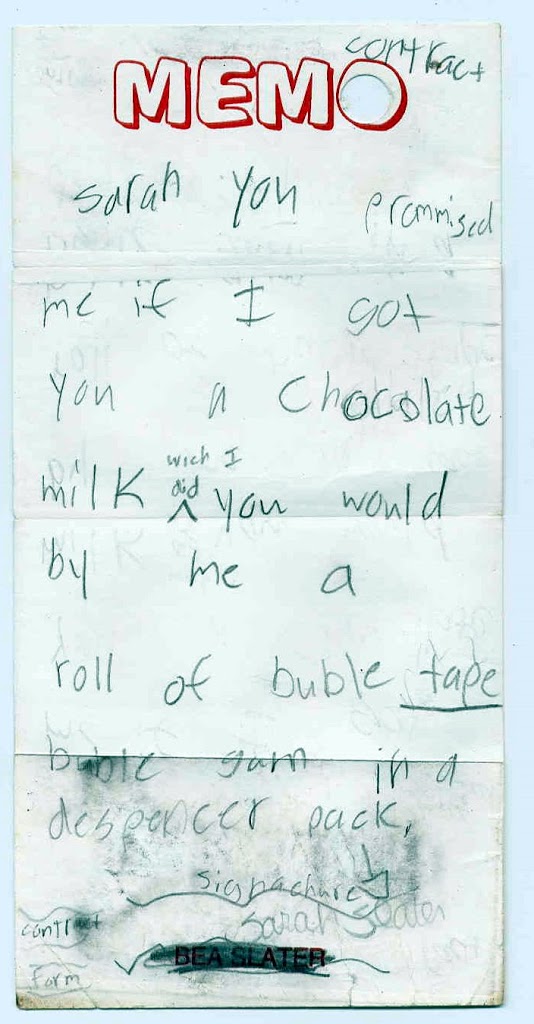 contract
MEMO
sarah you prommised
me if I got
you a chocolate
wich I
milk did you would
by me a
roll of buble tape
buble gum in a
despencer pack.
signachure
sarah slater
contract
BEA SLATER
Form